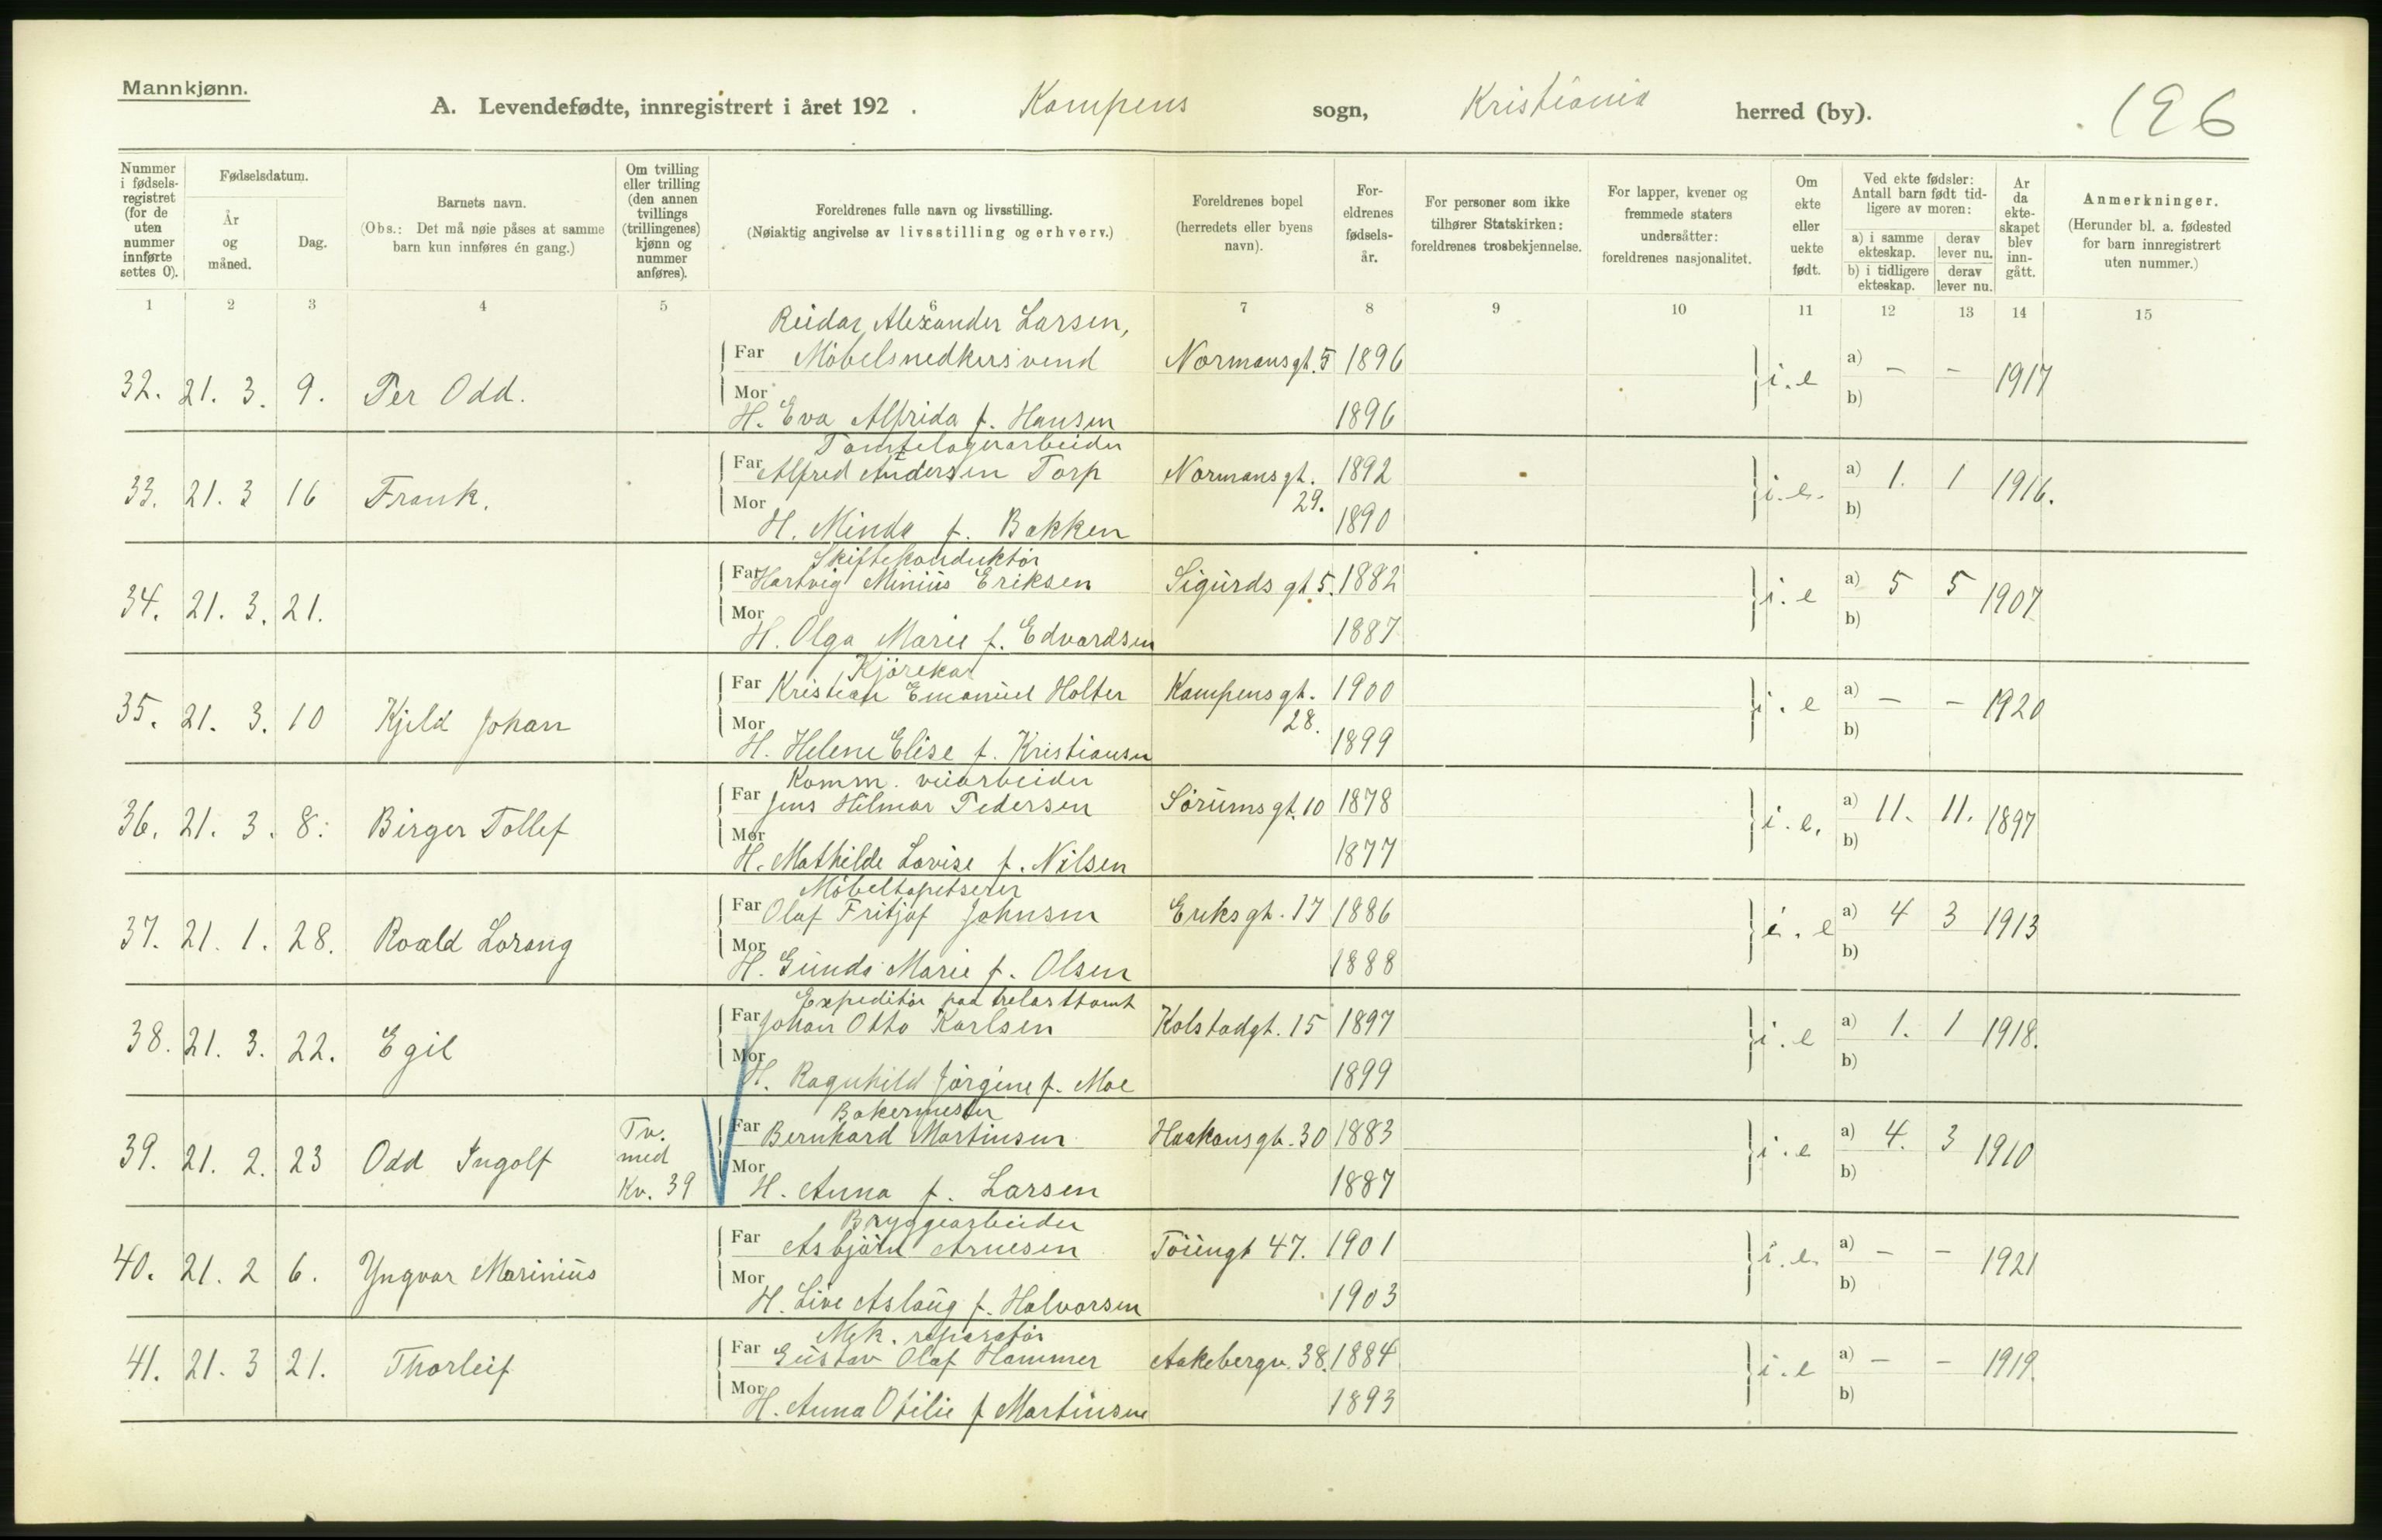 Mannkjønn.
A. Levendefødte, innregistrert i året 192 . Kampens sogn, Kristiania herred (by). 196
Nummer i fødsels-registret (for de uten nummer innførte settes 0).
Fødselsdatum.
År og måned.
Dag.
Barnets navn.
(Obs.: Det må nøie påses at samme barn kun innføres én gang.)
Om tvilling eller trilling (den annen tvillings (trillingenes) kjønn og nummer anføres).
Foreldrenes fulle navn og livsstilling.
(Nøiaktig angivelse av livsstilling og erhverv.)
Foreldrenes bopel (herredets eller byens navn).
For-eldrenes fødsels-år.
For personer som ikke tilhører Statskirken: foreldrenes trosbekjennelse.
For lapper, kvener og fremmede staters undersåtter: foreldrenes nasjonalitet.
Om ekte eller uekte født.
Ved ekte fødsler: Antall barn født tid-ligere av moren:
a) i samme ekteskap. derav lever nu.
b) i tidligere ekteskap. derav lever nu.
Ar da ekte-skapet blev inn-gått.
Anmerkninger.
(Herunder bl. a. fødested for barn innregistrert uten nummer.)
1 2 3 4 5 6 7 8 9 10 11 12 13 14 15
Reidar Alexander Larsen,
Far Möbelsnedkersvend Normansgt. 5 1896
32. 21. 3. 9. Per Odd. i.e a) – – 1917
Mor b)
H. Eva Alfrida f. Hansen 1896
Tomtelagerarbeider
Far Alfred Andersen Torp Normansgt. 29. 1892
33. 21. 3 16 Frank. i.e. a) 1. 1 1916.
Mor b)
H. Minda f. Bakken 1890
Skiftekonduktör
Far Hartvig Minius Eriksen Sigurds gt 5. 1882
34. 21. 3. 21. i.e a) 5 5 1907
Mor b)
H. Olga Marie f. Edvardsen 1887
Kjörekar
Far Kristian Emanuel Holter Kampensgt. 28. 1900
35. 21. 3. 10 Kjeld Johan i.e a) – – 1920
Mor b)
H. Helene Elise f. Kristiansen 1899
Komm. veiarbeider
Far Jens Hilmar Pedersen Sörumsgt. 10 1878
36. 21. 3. 8. Birger Tollef i.e. a) 11. 11. 1897
Mor b)
H. Mathilde Lovise f. Nilsen 1877
Möbeltapetserer
Far Olaf Fritjof Johnsen Eriksgt. 17 1886
37. 21. 1. 28. Roald Lorang i.e a) 4 3 1913
Mor b)
H. Gunda Marie f. Olsen 1888
Expeditör paa trelasttomt
Far Johan Otto Karlsen Kolstadgt. 15 1897
38. 21. 3. 22. Egil i.e a) 1. 1 1918.
Mor b)
H. Ragnhild Jörgine f. Moe 1899
Bakermester
Far Bernhard Martinsen Haakonsgt. 30 1883
39. 21. 2. 23 Odd Ingolf Tv. med Kv. 39 i.e a) 4. 3 1910
Mor b)
H. Anna f. Larsen 1887
Bryggearbeider
Far Asbjörn Arnesen Töiengt 47. 1901
40. 21. 2 6. Yngvar Marinius i.e. a) – – 1921
Mor b)
H. Live Aslaug f. Halvorsen 1903
Mek. reparatör
Far Gustav Olaf Hammer Aakebergv. 38. 1884
41. 21. 3 21. Thorleif i.e a) – – 1919.
Mor b)
H. Anna Otilie f Martinsen 1893